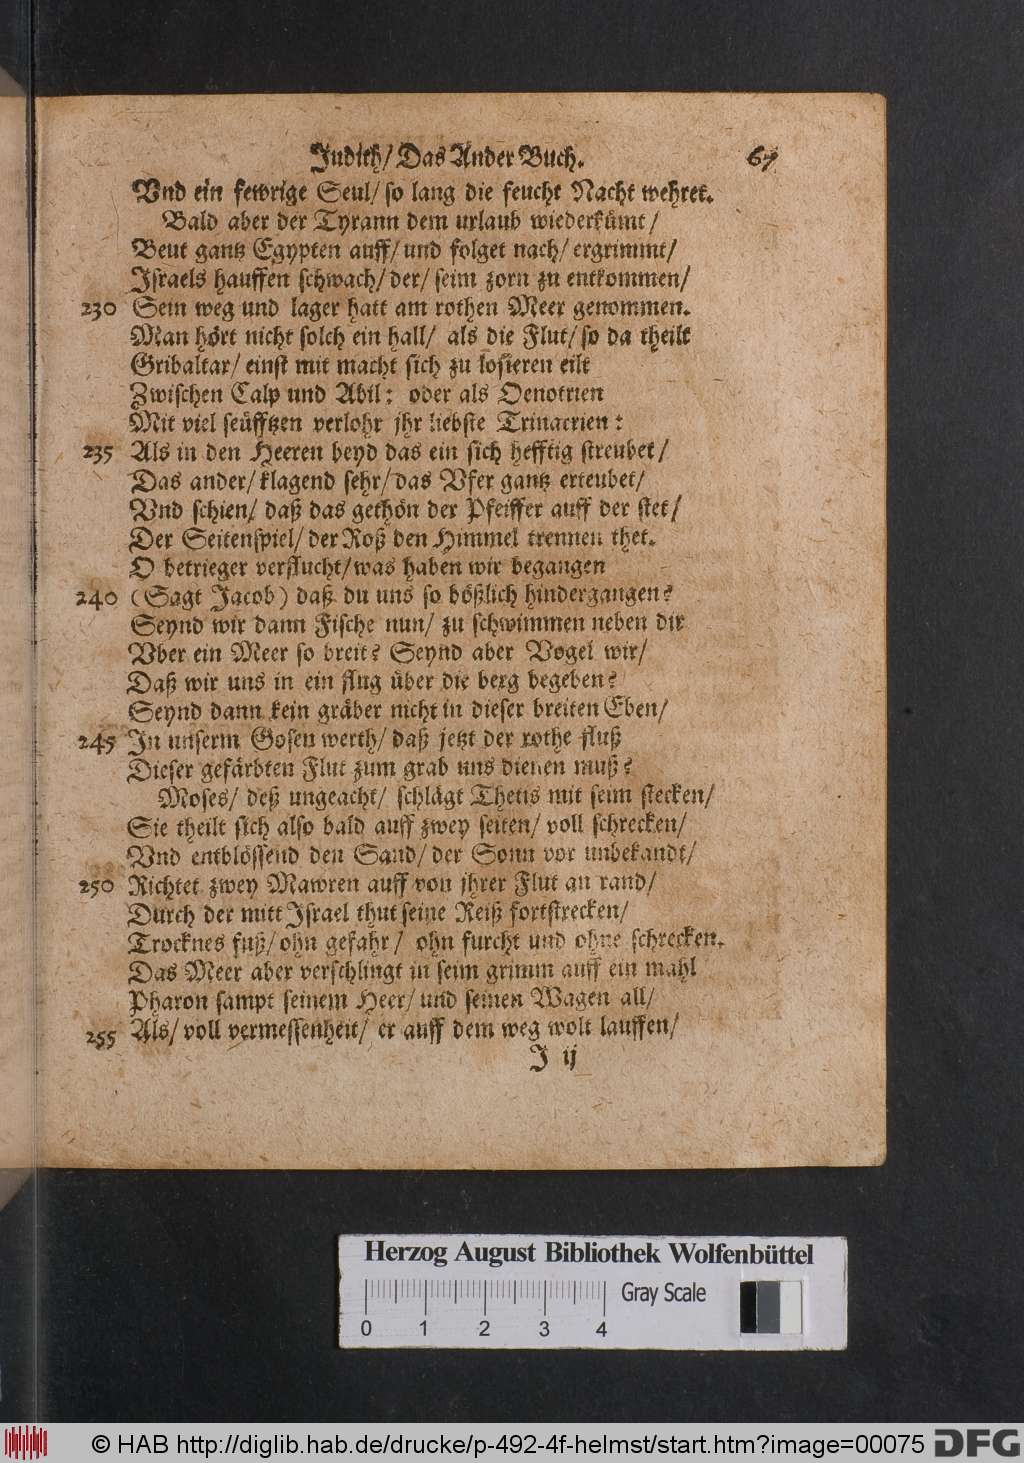 Judith/ Das Ander Buch. 67
Vnd ein fewrige Seul/ so lang die feucht Nacht wehret.
Bald aber der Tyrann dem urlaub wiederkümt/
Beut gantz Egypten auff/ und folget nach/ ergrimmt/
Israels hauffen schwach/ der/ seim zorn zu entkommen/
230 Sein weg und lager hatt am rothen Meer genommen.
Man hört nicht solch ein hall/ als die Flut/ so da theilt
Gribaltar/ einst mit macht sich zu losieren eilt
Zwischen Calp und Abil: oder als Oenotrien
Mit viel seüfftzen verlohr jhr liebste Trinacrien:
235 Als in den Heeren beyd das ein sich hefftig streubet/
Das ander/ klagend sehr/ das Vfer gantz erteubet/
Vnd schien/ daß das gethön der Pfeiffer auff der stet/
Der Seitenspiel/ der Roß den Himmel trennen thet.
O betrieger verflucht/ was haben wir begangen
240 (Sagt Jacob) daß du uns so bößlich hindergangen?
Seynd wir dann Fische nun/ zu schwimmen neben dir
Vber ein Meer so breit? Seynd aber Vogel wir/
Daß wir uns in ein flug über die berg begeben?
Seynd dann kein gräber nicht in dieser breiten Eben/
245 In unserm Gosen werth/ daß jetzt der rothe fluß
Dieser gefärbten Flut zum grab uns dienen muß?
Moses/ deß ungeacht/ schlägt Thetis mit seim stecken/
Sie theilt sich also bald auff zwey seiten/ voll schrecken/
Vnd entblössend den Sand/ der Sonn vor unbekandt/
250 Richtet zwey Mawren auff von jhrer Flut an rand/
Durch der mitt Israel thut seine Reiß fortstrecken/
Trocknes fuß/ ohn gefahr/ ohn furcht und ohne schrecken.
Das Meer aber verschlingt in seim grimm auff ein mahl
Pharon sampt seinem Heer/ und seinen Wagen all/
255 Als/ voll vermessenheit/ er auff dem weg wolt lauffen/
J ij
Herzog August Bibliothek Wolfenbüttel
Gray Scale
0 1 2 3 4
© HAB http://diglib.hab.de/drucke/p-492-4f-helmst/start.htm?image=00075 DFG